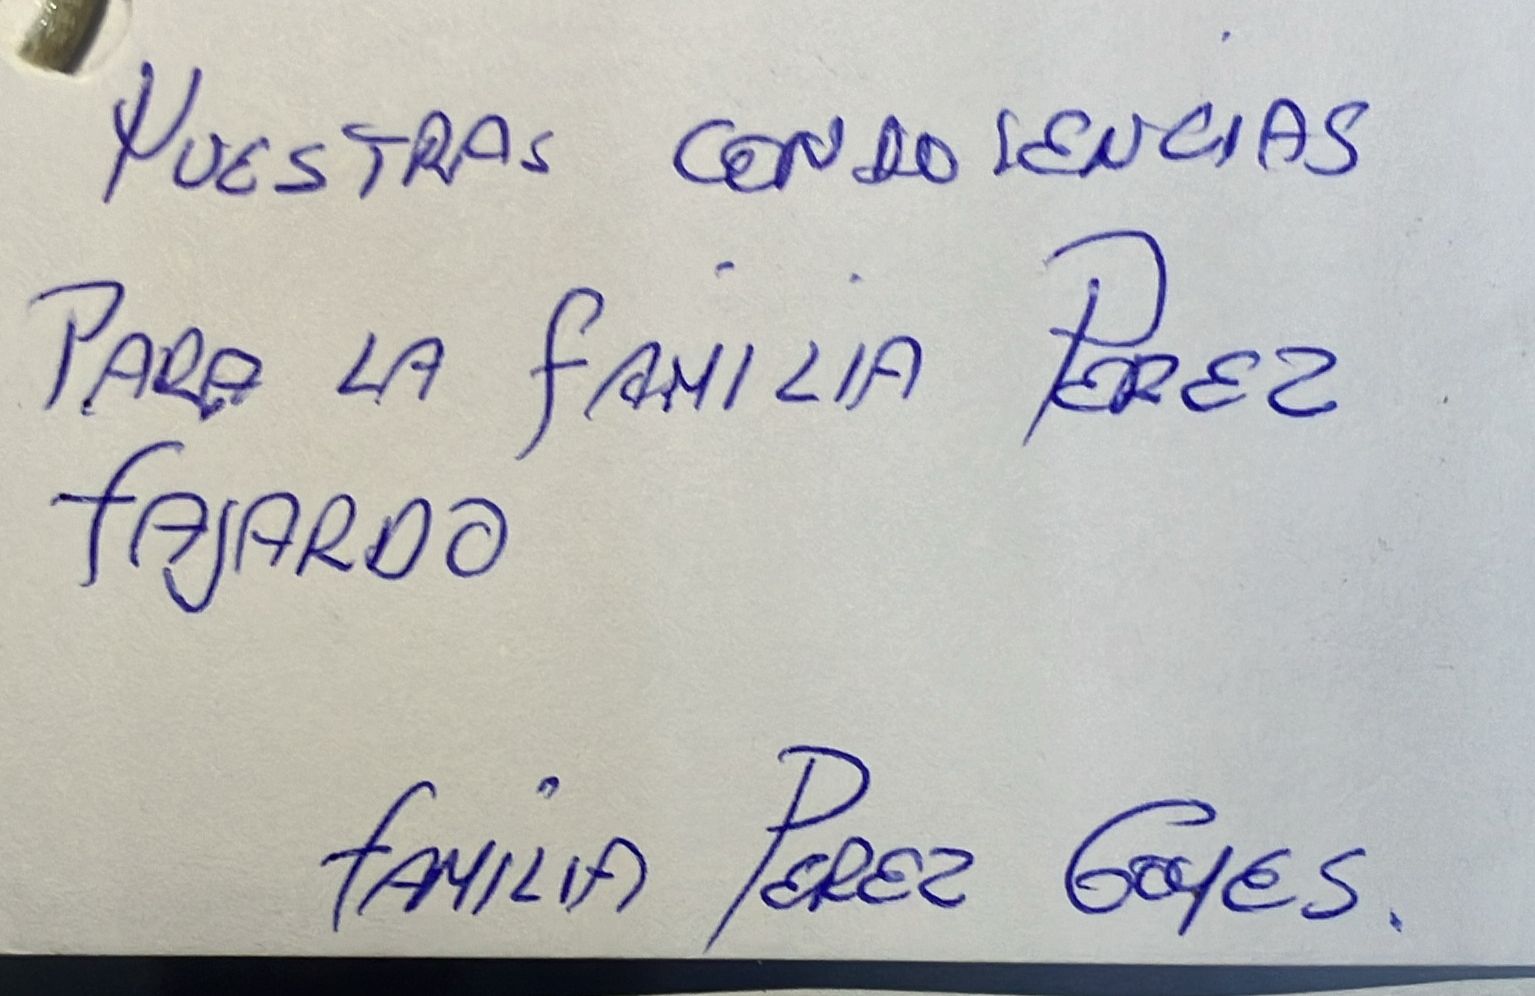 NUESTRAS CONDOLENCIAS
PARA LA fAMILIA PEREZ
fAJARDO
fAMILIA PEREZ GOYES.